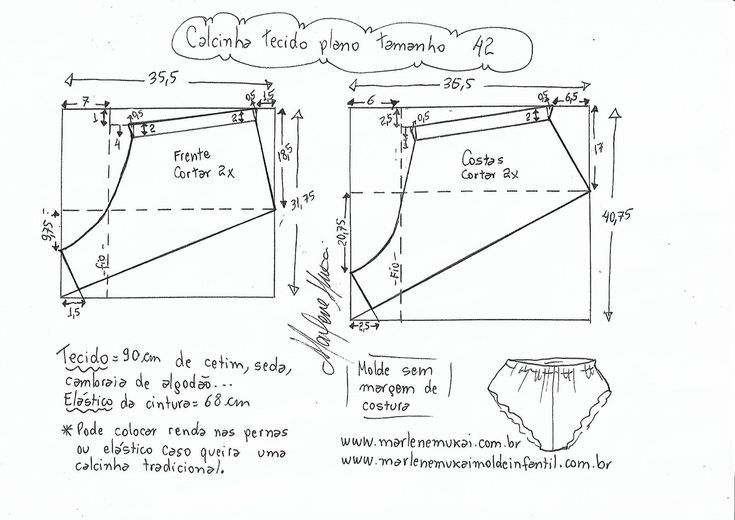 Calcinha tecido plano tamanho 42
35,5
7
0,5
1,5
1
0,5
2
2
4
Frente
Cortar 2x
18,5
31,75
9,75
fio
1,5
36,5
6
0,5
6,5
2,5
0,5
2
Costas
Cortar 2x
17
40,75
20,75
Fio
2,5
Marlene Mukai
Tecido = 90.cm de cetim, seda,
cambraia de algodão...
Elástico da cintura = 68.cm
* Pode colocar renda nas pernas
ou elástico caso queira uma
calcinha tradicional.
Molde sem
margem de
costura
www.marlenemukai.com.br
www.marlenemukaimoldeinfantil.com.br